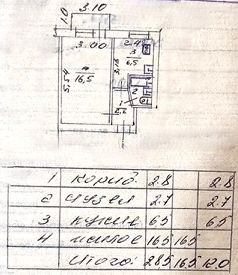 1.0
3.10
3.00
2.4
3
6,5
5,54
16,5
3,16
2
1
1 корид. 2.8 2.8
2 с/узел 2.7 2.7
3 кухне 6.5 6.5
4 жилое 16.5 16.5
Итого: 28.5 16.5 12.0